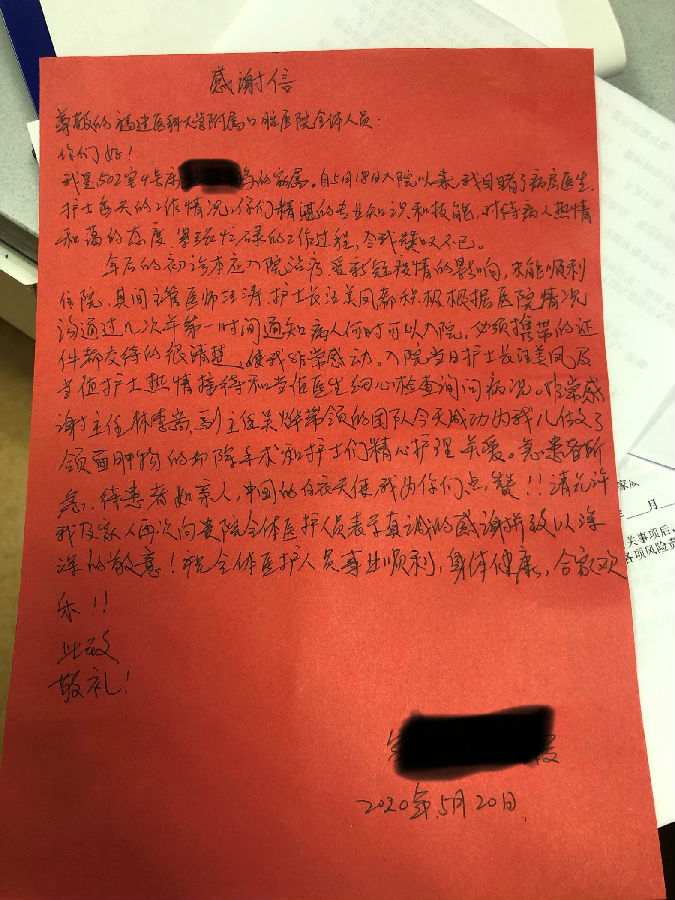 感谢信
尊敬的福建医科大学附属口腔医院全体人员:
你们好!
我是502室4号床 的家属。自5月18日入院以来,我目睹了病房医生,
护士每天的工作情况,你们精湛的专业知识和技能,对待病人热情
和蔼的态度 紧张忙碌的工作过程,令我赞叹不已。
年后的初诊本应入院治疗,受新冠疫情的影响,未能顺利
住院,其间主管医师汪涛,护士长汪美凤都积极根据医院情况
沟通过几次并第一时间通知病人何时可以入院,必须携带的证
件都交待的很清楚,使我非常感动。入院当日护士长汪美凤及
当值护士热情接待和当值医生细心检查询问病况。非常感
谢主任林李嵩,副主任吴 带领的团队今天成功为我儿做了
颌面肿物的切除手术和护士们精心护理关爱。急患者所
急,待患者如亲人,中国的白衣天使我为你们点赞!!请允许
我及家人再次向贵院全体医护人员表示真诚的感谢并致以深
深的敬意!祝全体医护人员事业顺利,身体健康,合家欢
乐!!
此致
敬礼!
2020年5月20日
家放
年 月
关事项后,
各项风险责